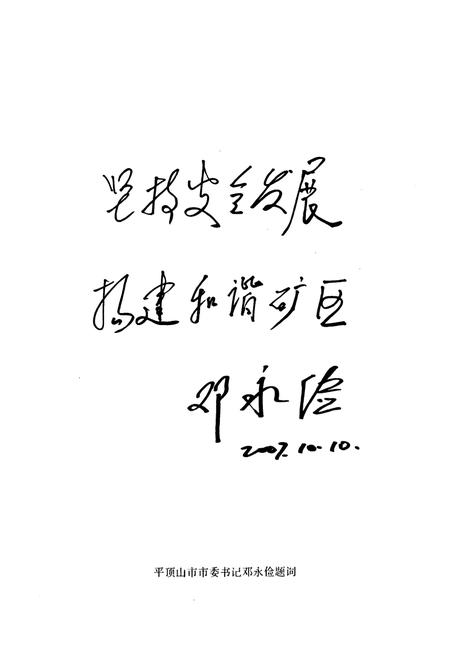 坚持安全发展
构建和谐矿区
邓永俭
2007.10.10.
平顶山市市委书记邓永俭题词